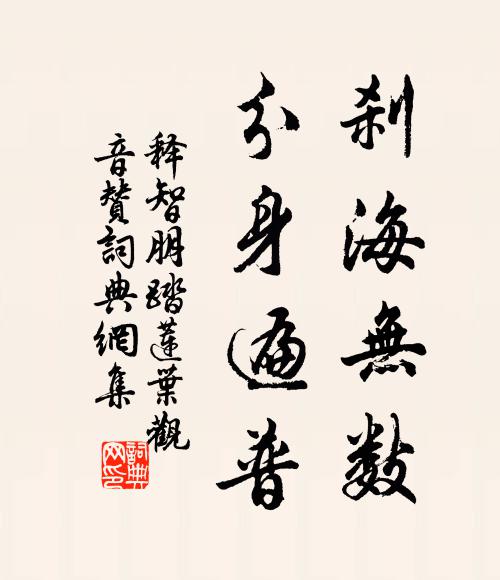 刹海無數
分身遍普
释智朋踏莲葉觀
音贊詞典網集
詞典
网印